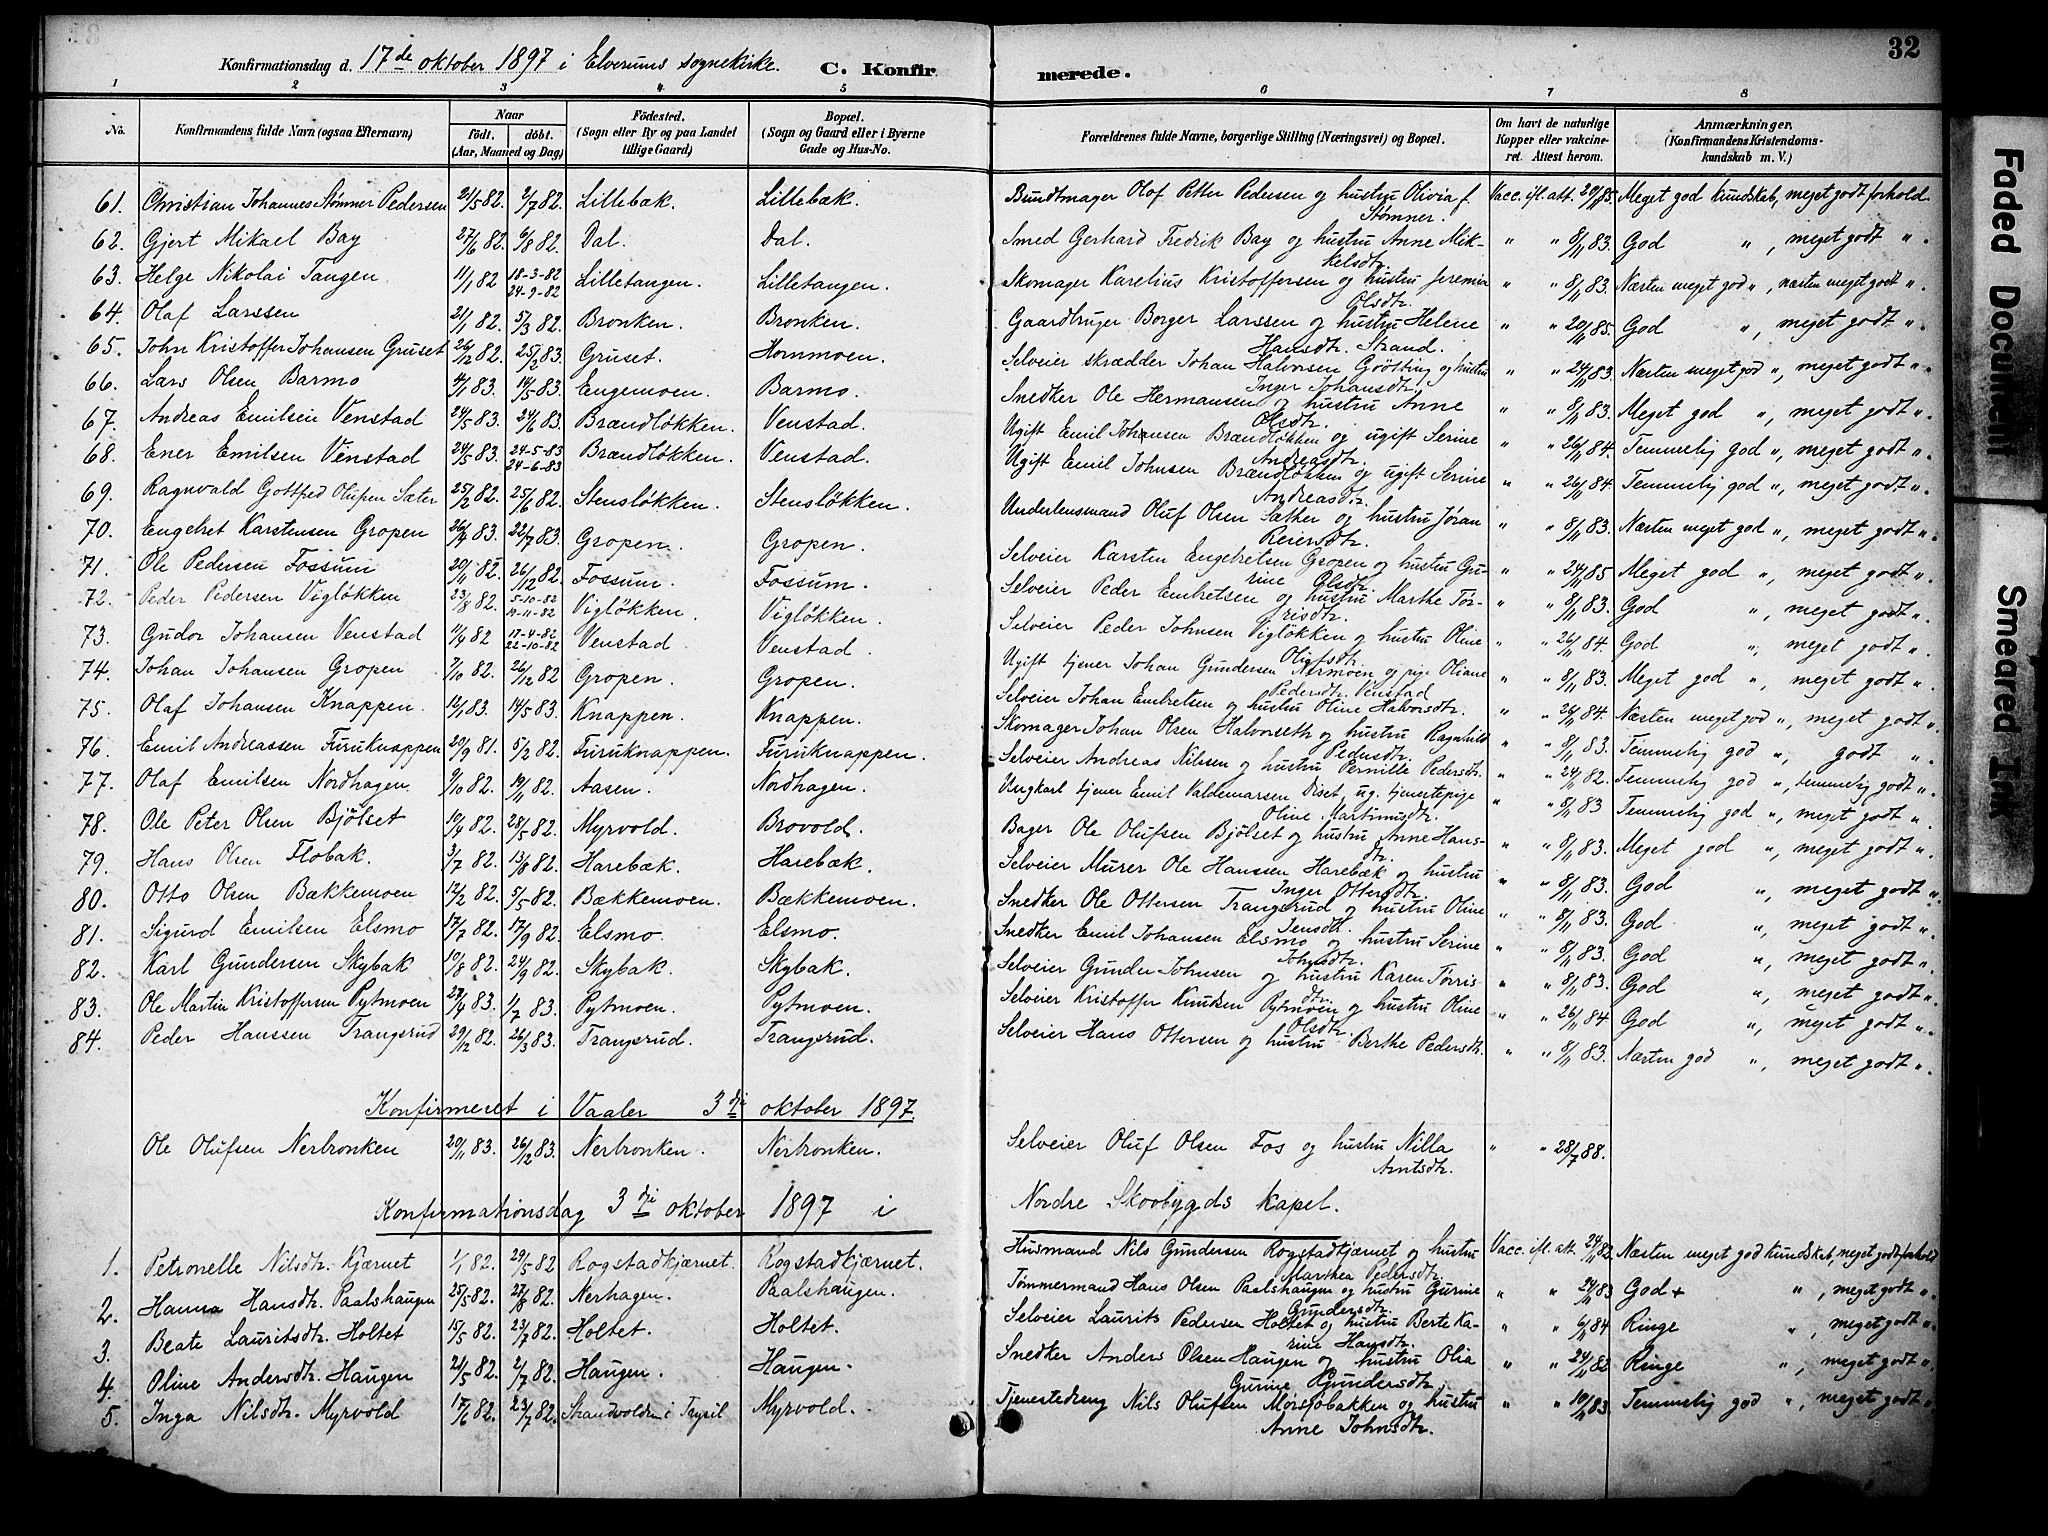 Konfirmationsdag d. 17de oktober 1897 i Elverums sognekirke. C. Konfirmerede. 32
1 2 3 4 5 6 7 8
No. Konfirmandens fulde Navn (ogsaa Efternavn) Naar født, døbt. (Aar, Maaned og Dag) Fødested. (Sogn eller By og paa Landet tillige Gaard) Bopæl. (Sogn og Gaard eller i Byerne Gade og Hus-No. Forældrenes fulde Navne, borgerlige Stilling (Næringsvei) og Bopæl. Om havt de naturlige Kopper eller vakcineret. Attest herom. Anmærkninger. (Konfirmandens Kristendomskundskab m. V.)
61. Christian Johannes Stømner Pedersen 21/5 82. 2/7 82. Lillebæk. Lillebæk. Bundtmager Olof Petter Pedersen og hustru Olivia f. Stømner. Vacc. ifl. att. 20/11 85. Meget god kundskab, meget godt forhold.
62. Gjert Mikael Bay 27/6 82. 6/8 82. Dal. Dal. Smed Gerhard Fredrik Bay og hustru Anne Mikkelsdtr. " " 8/11 83. God ", meget godt ".
63. Helge Nikolai Tangen 11/1 82 18-3-82 24-9-82 Lilletangen. Lilletangen. Skomager Karelius Kristoffersen og hustru Jeremia Olsdtr. " " 8/11 83. Næsten meget god ", næsten meget godt ".
64. Olaf Larssen 21/1 82. 5/3 82. Bronken. Bronken. Gaardbruger Borger Larssen og hustru Helene Hansdtr. Strand. " " 20/11 85. God ", meget godt ".
65. John Kristoffer Johansen Gruset 26/12 82. 25/2 83. Gruset. Hommoen. Selveier skrædder Johan Halvorsen og hustru Inger Johansdtr. " " 24/11 83. Næsten meget god ", meget godt ".
66. Lars Olsen Barmo 4/1 83. 14/5 83. Engemoen. Barmo. Snedker Ole Hermansen og hustru Anne Olsdtr. " " 8/11 83. Meget god ", meget godt ".
67. Andreas Emilsen Venstad 24/5 83. 24/6 83. Brændløkken. Venstad. Ugift Emil Johansen Brændløkken og ugift Serine Andreasdtr. " " 26/11 84. Temmelig god ", meget godt ".
68. Ener Emilsen Venstad 24/5 83. 24-5-83 24-6-83 Brændløkken. Venstad. Ugift Emil Johnsen Brændløkken og ugift Serine Andreasdtr. " " 26/11 84. Temmelig god ", meget godt ".
69. Ragnvald Gottfred Olufsen Sæter 25/2 82. 25/6 82. Stensløkken. Stensløkken. Underlensmand Oluf Olsen Sæther og hustru Jøran Reiersdtr. " " 8/11 83. Næsten meget god ", meget godt ".
70. Engebret Karstensen Gropen 26/4 83. 22/7 83. Gropen. Gropen. Selveier Karsten Engebretsen Gropen og hustru Gurine Olsdtr. " " 24/11 85 Meget god ", meget godt ".
71. Ole Pedersen Fossum 20/11 82. 26/12 82. Fossum. Fossum. Selveier Peder Embretsen og hustru Marthe Tørrisdtr. " " 8/11 83. God ", meget godt ".
72. Peder Pedersen Vigløkken 23/8 82. 5-10-82 19-11-82 Vigløkken. Vigløkken. Selveier Peder Johnsen Vigløkken og hustru Oline Olofsdtr. " " 26/11 84. God ", meget godt ".
73. Gudor Johansen Venstad 11/4 82 17-4-82 22-10-82 Venstad Venstad. Ugift tjener Johan Gundersen og pige Oliane Pedersdtr. Venstad " " 8/11 83. Meget god ", meget godt ".
74. Johan Johansen Gropen 7/10 82. 26/12 82 Gropen. Gropen. Selveier Johan Embretsen og hustru Oline Halvorsdtr. " " 26/11 84. Næsten meget god ", meget godt ".
75. Olaf Johansen Knappen. 12/1 83. 14/5 83. Knappen. Knappen. Skomager Johan Olsen Halvorseth og hustru Ragnhild Pedersdtr. " " 8/11 83. Temmelig god ", godt ".
76. Emil Andreassen Furuknappen 20/9 81. 5/2 82. Furuknappen. Furuknappen. Selveier Andreas Nilssen og hustru Pernille Pedersdtr. " " 24/11 82. Temmelig god ", temmelig godt ".
77. Olaf Emilsen Nordhagen 9/10 82. 19/11 82. Aasen. Nordhagen. Ungkarl tjener Emil Valdemarsen Diset, ug. tjenestepige Oline Martinusdtr. " " 8/11 83 Temmelig god ", meget godt ".
78. Ole Peter Olsen Bjølset 10/4 82. 28/5 82. Myrvold. Brovold. Bager Ole Olufsen Bjølset og hustru Anne Hansdtr. " " 8/11 83. Meget god ", meget godt ".
79. Hans Olsen Flobak. 3/7 82. 13/8 82. Harebæk. Harebæk. Selveier Murer Ole Hanssen Harebæk og hustru Inger Ottersdtr. " " 8/11 83. God ", meget godt ".
80. Otto Olsen Bækkemoen 12/2 82. 5/5 82. Bækkemoen. Bækkemoen. Snedker Ole Ottersen Trangsrud og hustru Oline Jensdtr. " " 8/11 83. God ", meget godt ".
81. Sigurd Emilsen Elsmo 17/7 82. 17/9 82. Elsmo. Elsmo. Snedker Emil Johansen Elsmo og hustru Serine Johnsdtr. " " 8/11 83. God ", meget godt ".
82. Karl Gundersen Skybak 10/8 82. 24/9 82. Skybak. Skybak. Selveier Gunder Johnsen og hustru Karen Tørrisdtr. " " 8/11 83. God ", meget godt ".
83. Ole Martin Kristoffersen Pytmoen 27/4 83. 1/7 83. Pytmoen. Pytmoen. Selveier Kristoffer Knudsen Pytmoen og hustru Oline Olsdtr. " " 26/11 84 God ", meget godt ".
84. Peder Hanssen Trangsrud 29/12 82. 26/3 83. Trangsrud. Trangsrud. Selveier Hans Ottersen og hustru Berthe Pedersdtr. " " 8/11 83. Næsten god ", meget godt ".
Konfirmeret i Vaaler 3dje oktober 1897.
Ole Olufsen Nerbronken 20/11 83. 26/12 83. Nerbronken. Nerbronken. Selveier Oluf Olsen Fos og hustru Nilla Arntsdtr. " " 28/7 88.
Konfirmationsdag 3dje oktober 1897 i Nordre Skovbygds kapel.
1. Petronelle Nilsdtr. Kjærnet 1/1 82. 29/5 82 Rogstadkjærnet. Rogstadkjærnet. Husmand Nils Gundersen Rogstadkjærnet og hustru Marthea Pedersdtr. Vacc. ifl. att. 24/11 82. Næsten meget god kundskab, meget godt forhold
2. Hanna Hansdtr. Paalshaugen 25/5 82. 27/8 82. Nerhagen. Paalshaugen. Tømmermand Hans Olsen Paalshaugen og hustru Gurine Gundersdtr. " " 24/11 83 God + ", meget godt ".
3. Beate Lauritsdtr. Holtet 15/5 82. 23/7 82. Holtet. Holtet. Selveier Laurits Pedersen Holtet og hustru Berte Karine Hansdtr. " " 6/11 84 Ringe ", meget godt ".
4. Oline Andersdtr. Haugen 21/5 82. 2/7 82. Haugen. Haugen. Snedker Anders Olsen Haugen og hustru Olia Gurine Gundersdtr. " " 24/11 83 Ringe ", meget godt ".
5. Inga Nilsdtr. Myrvold 17/6 82. 23/7 82. Strandvolden i Trysil Myrvold. Tjenestedreng Nils Olufsen Mørsjøbakken og hustru Anne Johnsdtr. " " 10/11 83. Temmelig god ", meget godt ".
Faded Document
Smeared Ink